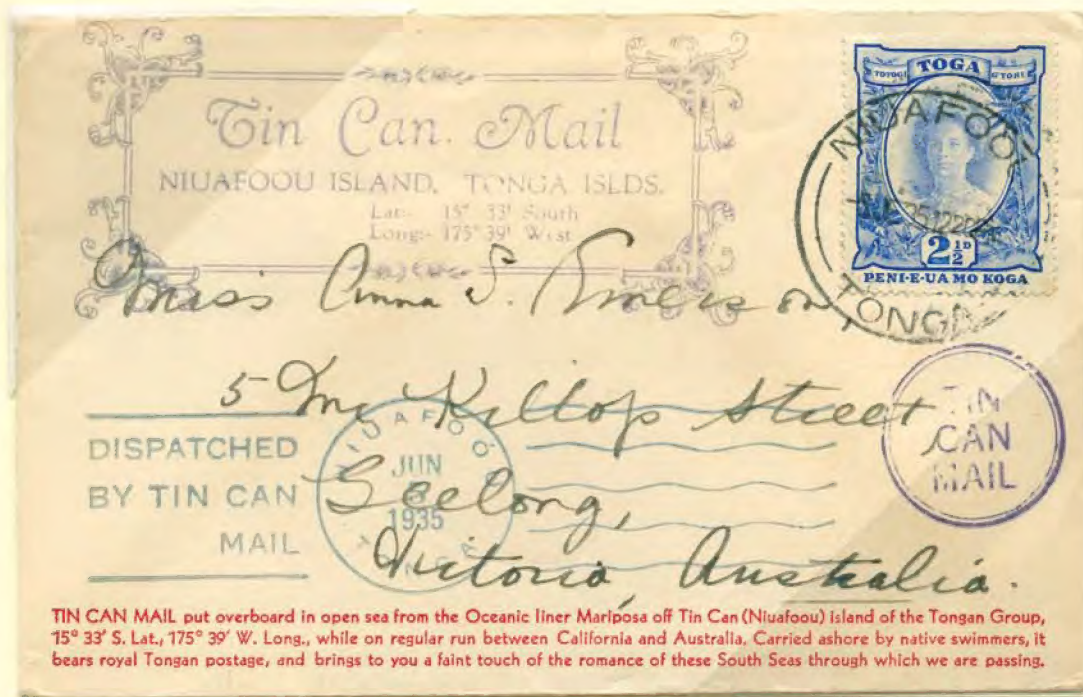 Tin Can. Mail
NIUAFOOU ISLAND. TONGA ISLDS.
Lat:- 15° 33' South
Long:- 175° 39' West
TOGA
2½ᴰ
PENI-E-UA MO KOGA
NIUAFOOU
TONGA
Miss Anna S. Emerson,
5 Mc Killop Street
Geelong,
Victoria, Australia.
TIN
CAN
MAIL
DISPATCHED
BY TIN CAN
MAIL
JUN
1935
TIN CAN MAIL put overboard in open sea from the Oceanic liner Mariposa off Tin Can (Niuafoou) island of the Tongan Group,
15° 33' S. Lat., 175° 39' W. Long., while on regular run between California and Australia. Carried ashore by native swimmers, it
bears royal Tongan postage, and brings to you a faint touch of the romance of these South Seas through which we are passing.